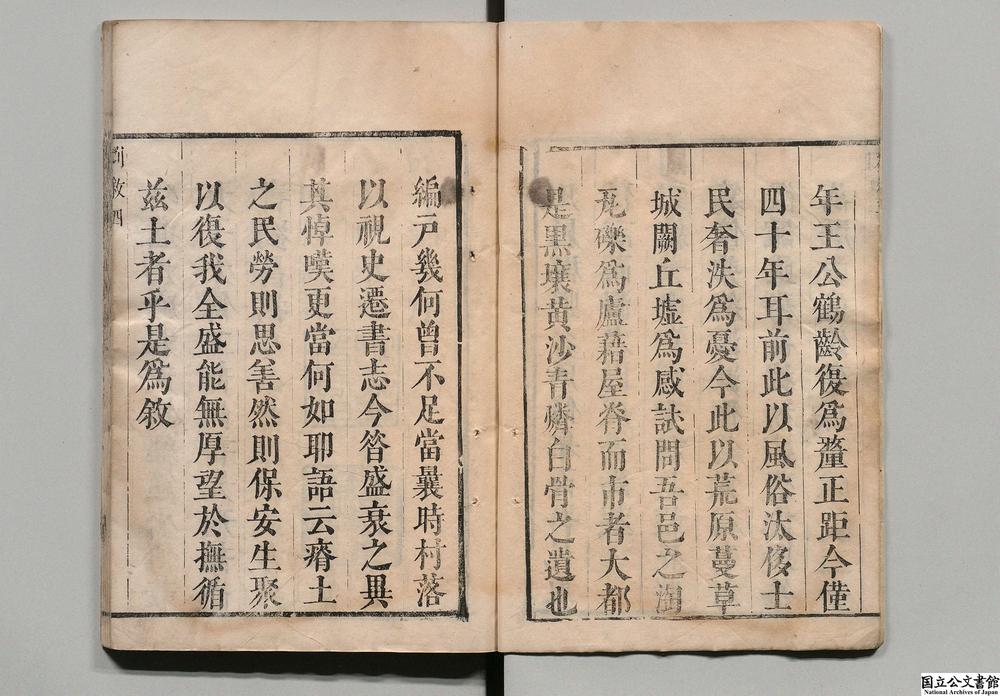 年王公鶴齡復爲釐正距今僅
四十年耳前此以風俗汰侈士
民奢泆爲憂今此以荒原蔓草
城闕丘墟爲感試問吾邑之湖
瓦礫爲廬藉屋脊而市者大都
是黒壤黄沙青燐白骨之遺也
編戸幾何曾不足當曩時村落
以視史遷書志今昝盛衰之異
其悼嘆更當何如耶語云瘠土
之民勞則思善然則保安生聚
以復我全盛能無厚望於撫循
兹土者乎是爲敘
敘四
国立公文書館
National Archives of Japan